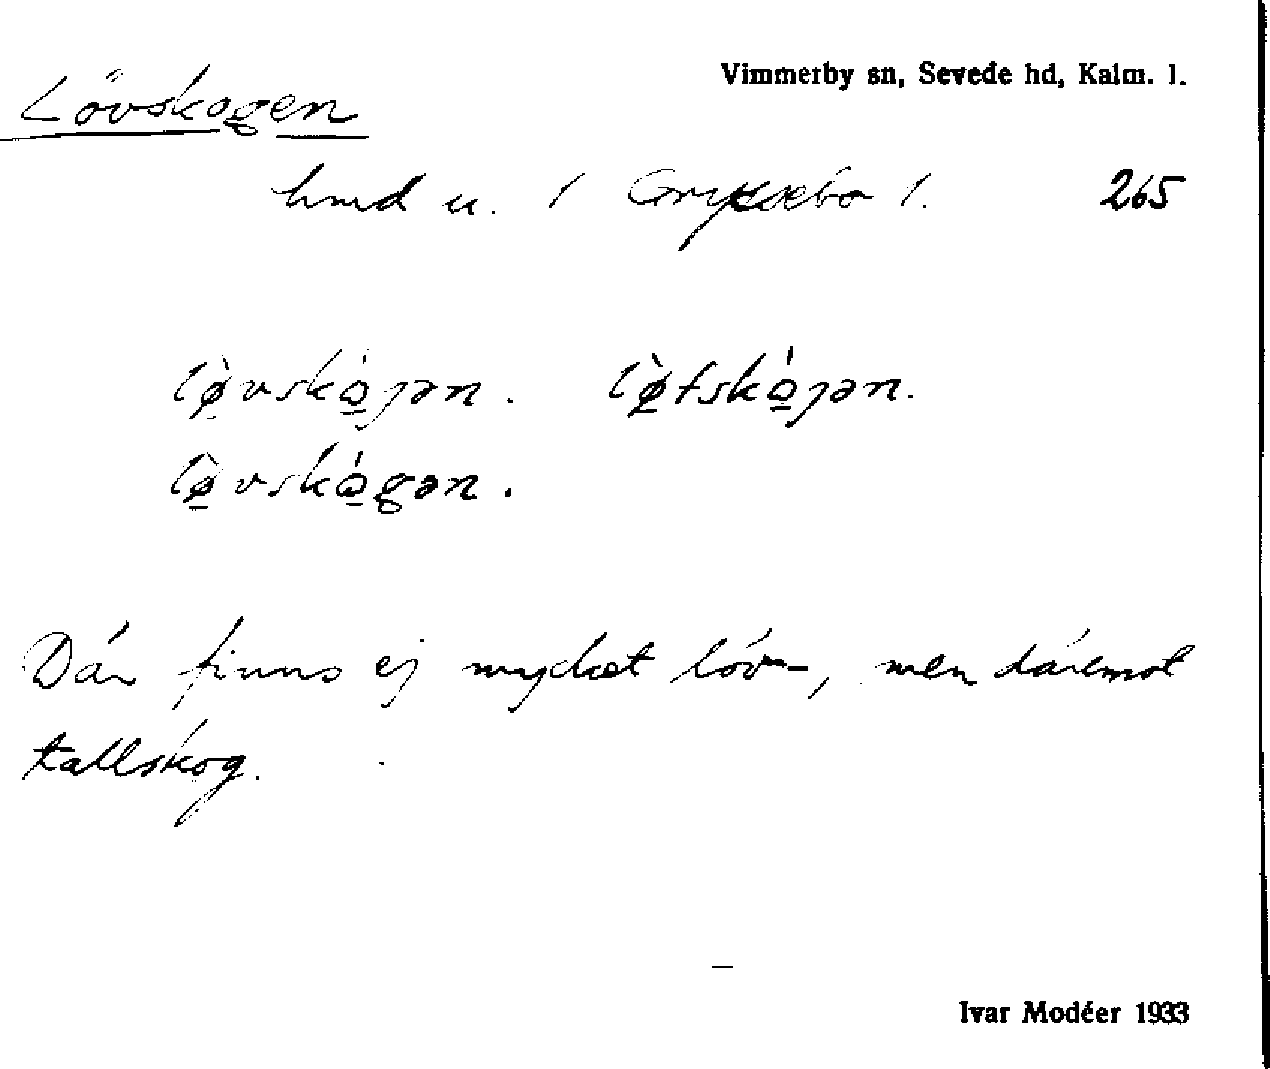 Vimmerby sn, Sevede hd, Kalm. l.
Lövskogen
hmd u. 1 Gryssebo 1. 265
lø̀vskójən. lø̀fskójən.
lø̀vskógən.
Där finns ej mycket löv-, men däremot
tallskog.
Ivar Modéer 1933